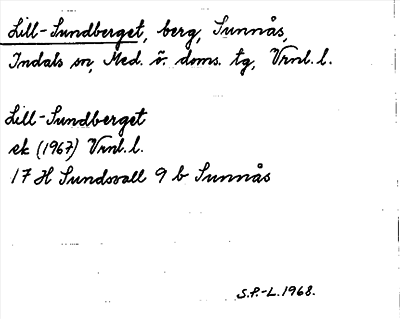 Lill-Sundberget, berg, Sunnås,
Indals sn, Med. ö. doms. tg, Vrnl. l.
Lill-Sundberget
ek (1967) Vrnl. l.
17 H Sundsvall 9 b Sunnås
S.P.-L. 1968.